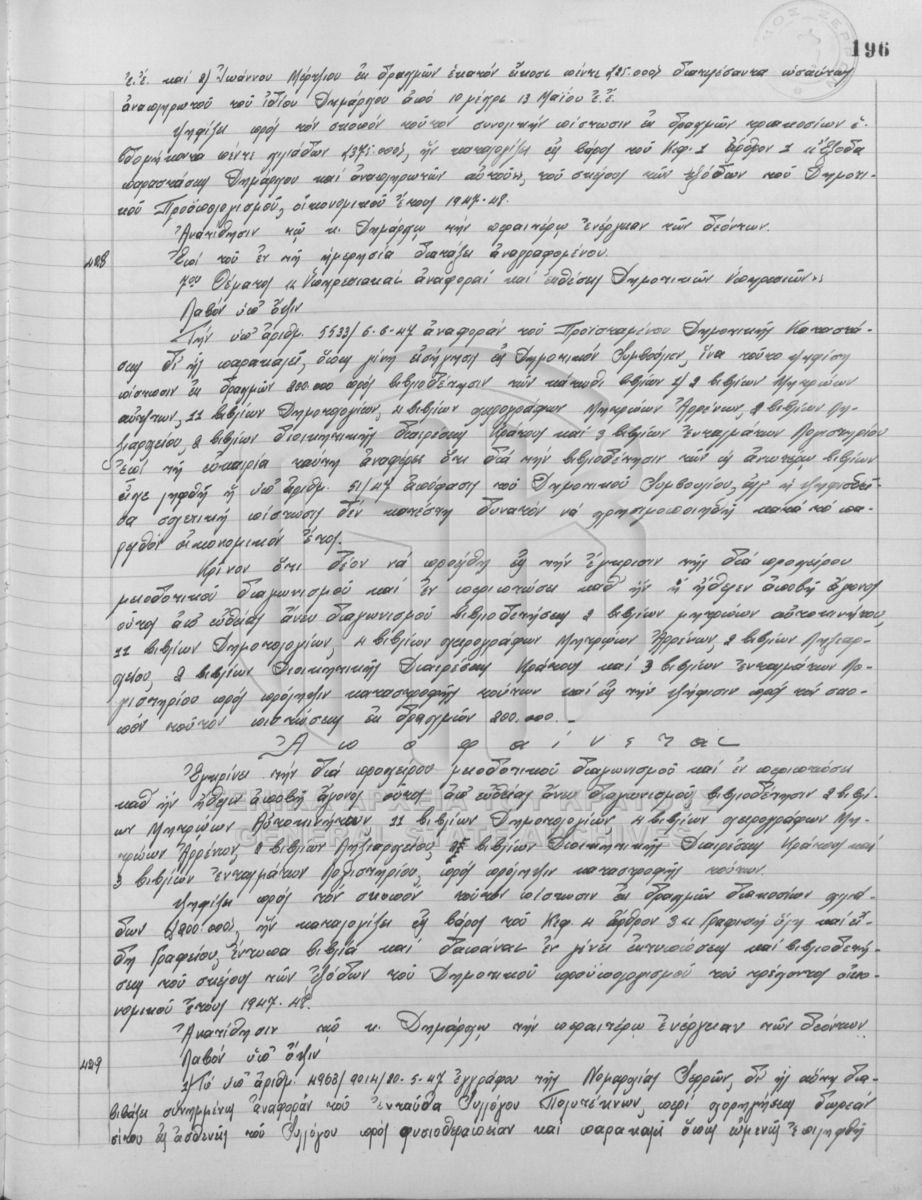 196
ἐ.ἔ. καὶ 2) Ἰωάννου Μόρτζιου ἐκ δραχμῶν ἑκατὸν εἴκοσι πέντε (125.000) διατελέσαντα ὡσαύτως
ἀναπληρωτοῦ τοῦ ἰδίου Δημάρχου ἀπὸ 10 μέχρι 13 Μαΐου ἐ.ἔ.
Ψηφίζει πρὸς τὸν σκοπὸν τοῦτον συνολικὴν πίστωσιν ἐκ δραχμῶν τριακοσίων ἑ-
βδομήκοντα πέντε χιλιάδων (375.000), ἣν καταλογίζει εἰς βάρος τοῦ Κεφ. 1 ἄρθρον 2 "Ἔξοδα
παραστάσεως Δημάρχου καὶ ἀναπληρωτῶν αὐτοῦ", τοῦ σκέλους τῶν ἐξόδων τοῦ Δημοτι-
κοῦ Προϋπολογισμοῦ, οἰκονομικοῦ ἔτους 1947-48.
Ἀνατίθησιν τῷ κ. Δημάρχῳ τὴν περαιτέρω ἐνέργειαν τῶν δεόντων.
428 Ἐπὶ τοῦ ἐν τῇ ἡμερησίᾳ διατάξει ἀναγραφομένου
7ου Θέματος "Ὑπηρεσιακαὶ ἀναφοραὶ καὶ ἐκθέσεις Δημοτικῶν Ὑπηρεσιῶν"
Λαβὸν ὑπ' ὄψιν
Τὴν ὑπ' ἀριθμ. 5533/6-6-47 ἀναφορὰν τοῦ Προϊσταμένου Δημοτικῆς Καταστά-
σεως δι' ἧς παρακαλεῖ, ὅπως γίνῃ εἰσήγησις εἰς Δημοτικὸν Συμβούλιον, ἵνα τοῦτο ψηφίσῃ
πίστωσιν ἐκ δραχμῶν 200.000 πρὸς βιβλιοδέτησιν τῶν κάτωθι βιβλίων 2 βιβλίων Μητρώων
11 βιβλίων Δημοτολογίων, 4 βιβλίων χειρογράφων Μητρώων Ἀρρένων, 2 βιβλίων Λη-
ξιαρχείου, 2 βιβλίων διοικητικῆς διαιρέσεως Κράτους καὶ 3 βιβλίων Ἐνταλμάτων Λογιστηρίου
Ἐπὶ τῇ εὐκαιρίᾳ ταύτῃ ἀναφέρει ὅτι διὰ τὴν βιβλιοδέτησιν τῶν ὡς ἀνωτέρω βιβλίων
εἶχε ληφθῆ ἡ ὑπ' ἀριθμ. 51/47 ἀπόφασις τοῦ Δημοτικοῦ Συμβουλίου, ἀλλ' ἡ ψηφισθεῖ-
σα σχετικὴ πίστωσις δὲν κατέστη δυνατὸν νὰ χρησιμοποιηθῇ κατὰ τὸ πα-
ρελθὸν οἰκονομικὸν ἔτος.
Κρῖνον ὅτι δέον νὰ προέλθῃ εἰς τὴν ἔγκρισιν τῆς διὰ προχείρου
μειοδοτικοῦ διαγωνισμοῦ καὶ ἐν περιπτώσει καθ' ἣν ἤθελεν ἀποβῆ ἄγονος
οὗτος ἀπ' εὐθείας ἄνευ διαγωνισμοῦ βιβλιοδετήσεως 2 βιβλίων μητρώων αὐτοκινήτου,
11 βιβλίων Δημοτολογίων, 4 βιβλίων χειρογράφων Μητρώων Ἀρρένων, 2 βιβλίων Ληξιαρ-
χείου, 2 βιβλίων Διοικητικῆς Διαιρέσεως Κράτους καὶ 3 βιβλίων Ἐνταλμάτων Λο-
γιστηρίου πρὸς πρόληψιν καταστροφῆς τούτων καὶ εἰς τὴν ψήφισιν πρὸς τὸν σκο-
πὸν τοῦτον πιστώσεως ἐκ δραχμῶν 200.000.-
Ἀποφαίνεται
Ἐγκρίνει τὴν διὰ προχείρου μειοδοτικοῦ διαγωνισμοῦ καὶ ἐν περιπτώσει
καθ' ἣν ἤθελεν ἀποβῆ ἄγονος οὗτος ἀπ' εὐθείας ἄνευ διαγωνισμοῦ βιβλιοδέτησιν 2 βιβλί-
ων Μητρώων Αὐτοκινήτων 11 βιβλίων Δημοτολογίων 4 βιβλίων χειρογράφων Μη-
τρώων Ἀρρένων, 2 βιβλίων Ληξιαρχείου, 2 βιβλίων Διοικητικῆς Διαιρέσεως Κράτους καὶ
3 βιβλίων Ἐνταλμάτων Λογιστηρίου, πρὸς πρόληψιν καταστροφῆς τούτων.
Ψηφίζει πρὸς τὸν σκοπὸν τοῦτον πίστωσιν ἐκ δραχμῶν διακοσίων χιλιά-
δων (200.000), ἣν καταλογίζει εἰς βάρος τοῦ Κεφ. 4 ἄρθρον 3 "Γραφικὴ ὕλη καὶ εἴ-
δη Γραφείου, ἔντυπα βιβλία καὶ δαπάναι ἐν γένει ἐκτυπώσεως καὶ βιβλιοδετή-
σεως τοῦ σκέλους τῶν ἐξόδων τοῦ Δημοτικοῦ προϋπολογισμοῦ τοῦ τρέχοντος οἰκο-
νομικοῦ ἔτους 1947-48.
Ἀνατίθησιν τῷ κ. Δημάρχῳ τὴν περαιτέρω ἐνέργειαν τῶν δεόντων.
429 Λαβὸν ὑπ' ὄψιν
1) Τὸ ὑπ' ἀριθμ. 4968/9014/20-5-47 ἔγγραφον τῆς Νομαρχίας Σερρῶν, δι' ἧς αὕτη δια-
βιβάζει συνημμένως ἀναφορὰν τοῦ ἐνταῦθα Συλλόγου Πολυτέκνων, περὶ χορηγήσεως δωρεὰν
εἰς ἀσθενεῖς τοῦ Συλλόγου πρὸς φυσιοθεραπείαν καὶ παρακαλεῖ ὅπως εὐμενῶς ἐπιληφθῇ
ΓΕΝΙΚΑ ΑΡΧΕΙΑ ΤΟΥ ΚΡΑΤΟΥΣ
GENERAL STATE ARCHIVES